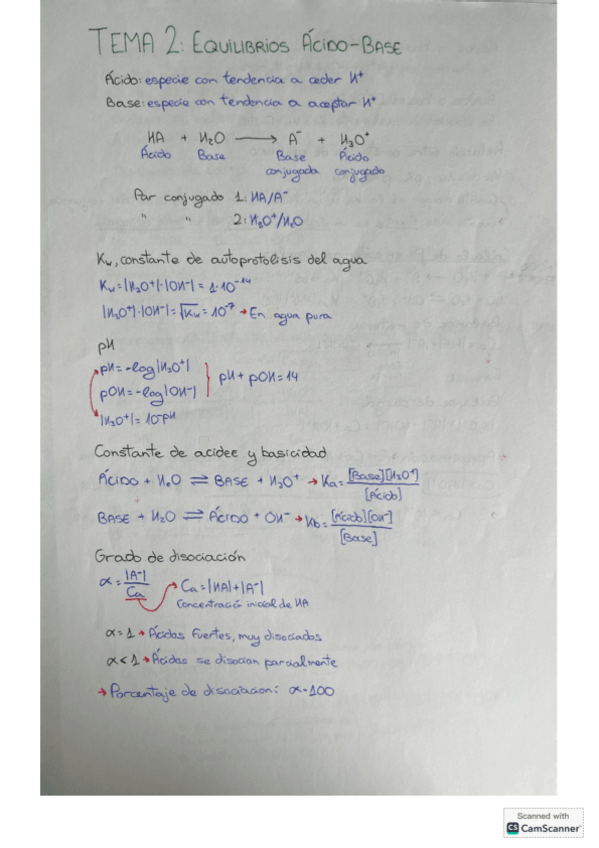 TEMA 2: EQUILIBRIOS ÁCIDO-BASE
Ácido: especie con tendencia a ceder H+
Base: especie con tendencia a aceptar H+
HA + H2O ⟶ A- + H3O+
Ácido Base Base conjugada Ácido conjugado
Par conjugado 1: HA/A-
" " 2: H3O+/H2O
Kw, constante de autoprotolisis del agua
Kw = |H3O+|·|OH-| = 1·10^-14
|H3O+|·|OH-| = √Kw = 10^-7 → En agua pura
pH
pH = -log|H3O+|
pOH = -log|OH-| } pH + pOH = 14
|H3O+| = 10^-pH
Constante de acidez y basicidad
ÁCIDO + H2O ⇌ BASE + H3O+ → Ka = [Base][H3O+] / [Ácido]
BASE + H2O ⇌ ÁCIDO + OH- → Kb = [Ácido][OH-] / [Base]
Grado de disociación
α = |A-| / Ca → Ca = |HA| + |A-|
Concentració inicial de HA
α = 1 → Ácidos fuertes, muy disociados
α < 1 → Ácidos se disocian parcialmente
→ Porcentaje de disociacion: α·100
Scanned with
CS CamScanner